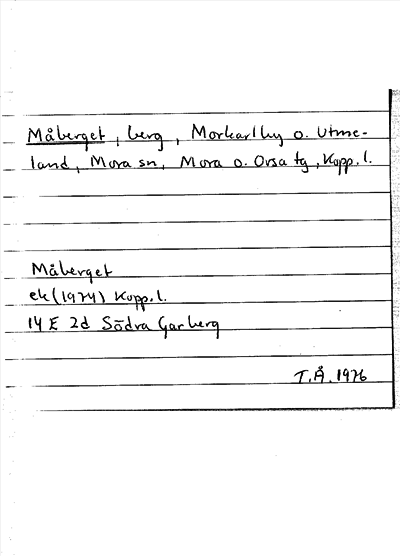 Måberget, berg, Morkarlby o. Utme-
land, Mora sn, Mora o. Orsa tg, Kopp. l.
Måberget
ek (1974) Kopp. l.
14 E 2d Södra Garberg
T.Å. 1976